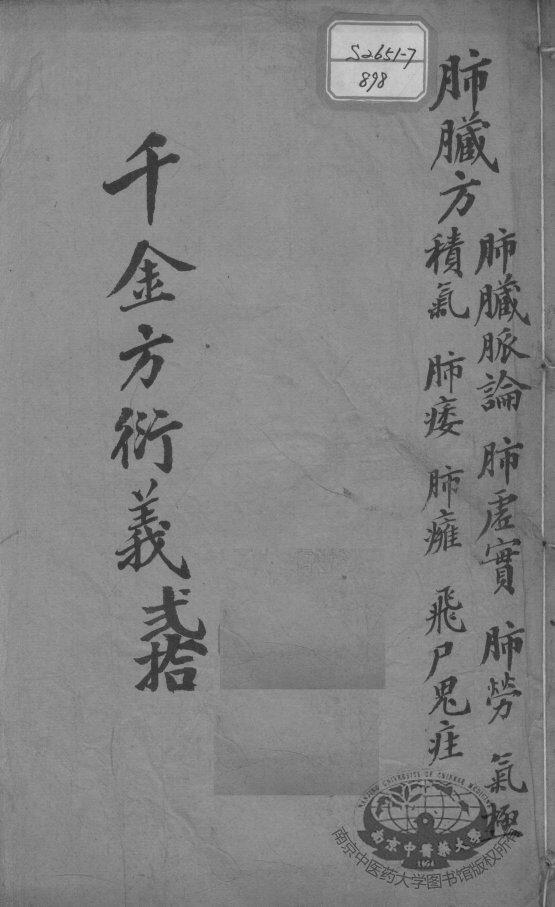 S2651-7
898
肺臟方
肺臟脈論 肺虛實 肺勞 氣極
積氣 肺痿 肺癰 飛尸鬼疰
千金方衍義 弍拾
NANJING UNIVERSITY OF CHINESE MEDICINE
南京中醫藥大學
1954
南京中医药大学图书馆版权所有